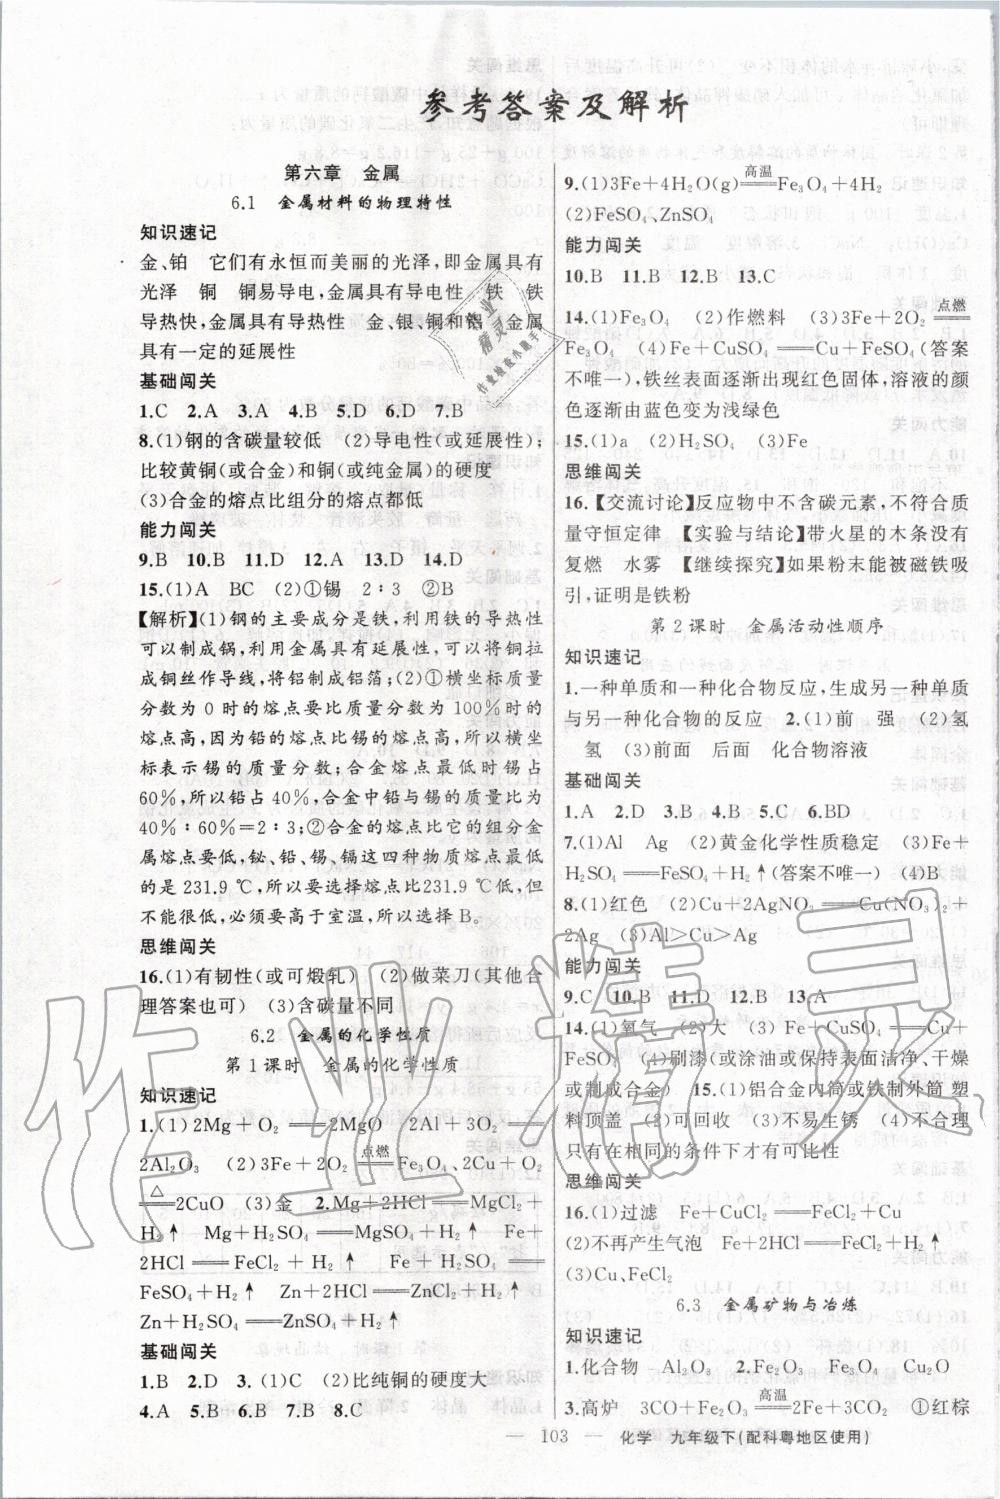 参考答案及解析
第六章 金属
6.1 金属材料的物理特性
知识速记
金、铂 它们有永恒而美丽的光泽,即金属具有
光泽 铜 铜易导电,金属具有导电性 铁 铁
导热快,金属具有导热性 金、银、铜和铝 金属
具有一定的延展性
基础闯关
1.C 2.A 3.A 4.B 5.D 6.D 7.B
8.(1)钢的含碳量较低 (2)导电性(或延展性);
比较黄铜(或合金)和铜(或纯金属)的硬度
(3)合金的熔点比组分的熔点都低
能力闯关
9.B 10.B 11.D 12.A 13.D 14.D
15.(1)A BC (2)①锡 2∶3 ②B
【解析】(1)钢的主要成分是铁,利用铁的导热性
可以制成锅,利用金属具有延展性,可以将铜拉
成铜丝作导线,将铝制成铝箔;(2)①横坐标质量
分数为 0 时的熔点要比质量分数为 100%时的
熔点高,因为铅的熔点比锡的熔点高,所以横坐
标表示锡的质量分数;合金熔点最低时锡占
60%,所以铅占 40%,合金中铅与锡的质量比为
40%∶60%=2∶3;②合金的熔点比它的组分金
属熔点要低,铋、铅、锡、镉这四种物质熔点最低
的是 231.9 ℃,所以要选择熔点比231.9 ℃低,但
不能很低,必须要高于室温,所以选择 B。
思维闯关
16.(1)有韧性(或可煅轧) (2)做菜刀(其他合
理答案也可) (3)含碳量不同
6.2 金属的化学性质
第 1 课时 金属的化学性质
知识速记
1.(1)2Mg+O₂══2MgO 4Al+3O₂══
2Al₂O₃ (2)3Fe+2O₂ 点燃══ Fe₃O₄、2Cu+O₂
△══2CuO (3)金 2.Mg+2HCl══MgCl₂+
H₂↑ Mg+H₂SO₄══MgSO₄+H₂↑ Fe+
2HCl══FeCl₂+H₂↑ Fe+H₂SO₄══
FeSO₄+H₂↑ Zn+2HCl══ZnCl₂+H₂↑
Zn+H₂SO₄══ZnSO₄+H₂↑
基础闯关
1.B 2.D 3.(1)C (2)比纯铜的硬度大
4.A 5.B 6.B 7.B 8.C
9.(1)3Fe+4H₂O(g) 高温══ Fe₃O₄+4H₂
(2)FeSO₄、ZnSO₄
能力闯关
10.B 11.B 12.B 13.C
14.(1)Fe₃O₄ (2)作燃料 (3)3Fe+2O₂ 点燃══
Fe₃O₄ (4)Fe+CuSO₄══Cu+FeSO₄(答案
不唯一),铁丝表面逐渐出现红色固体,溶液的颜
色逐渐由蓝色变为浅绿色
15.(1)a (2)H₂SO₄ (3)Fe
思维闯关
16.【交流讨论】反应物中不含碳元素,不符合质
量守恒定律 【实验与结论】带火星的木条没有
复燃 水雾 【继续探究】如果粉末能被磁铁吸
引,证明是铁粉
第 2 课时 金属活动性顺序
知识速记
1.一种单质和一种化合物反应,生成另一种单质
与另一种化合物的反应 2.(1)前 强 (2)氢
氢 (3)前面 后面 化合物溶液
基础闯关
1.A 2.D 3.B 4.B 5.C 6.BD
7.(1)Al Ag (2)黄金化学性质稳定 (3)Fe+
H₂SO₄══FeSO₄+H₂↑(答案不唯一) (4)B
8.(1)红色 (2)Cu+2AgNO₃══Cu(NO₃)₂+
2Ag (3)Al>Cu>Ag
能力闯关
9.C 10.B 11.D 12.B 13.A
14.(1)氧气 (2)大 (3)Fe+CuSO₄══Cu+
FeSO₄ (4)刷漆(或涂油或保持表面洁净、干燥
或制成合金) 15.(1)铝合金内筒或铁制外筒 塑
料顶盖 (2)可回收 (3)不易生锈 (4)不合理
只有在相同的条件下才有可比性
思维闯关
16.(1)过滤 Fe+CuCl₂══FeCl₂+Cu
(2)不再产生气泡 Fe+2HCl══FeCl₂+H₂↑
(3)Cu、FeCl₂
6.3 金属矿物与冶炼
知识速记
1.化合物 Al₂O₃ 2.Fe₂O₃ Fe₃O₄ Cu₂O
3.高炉 3CO+Fe₂O₃ 高温══ 2Fe+3CO₂ ①红棕
— 103 — 化学 九年级下(配科粤地区使用)
作业精灵